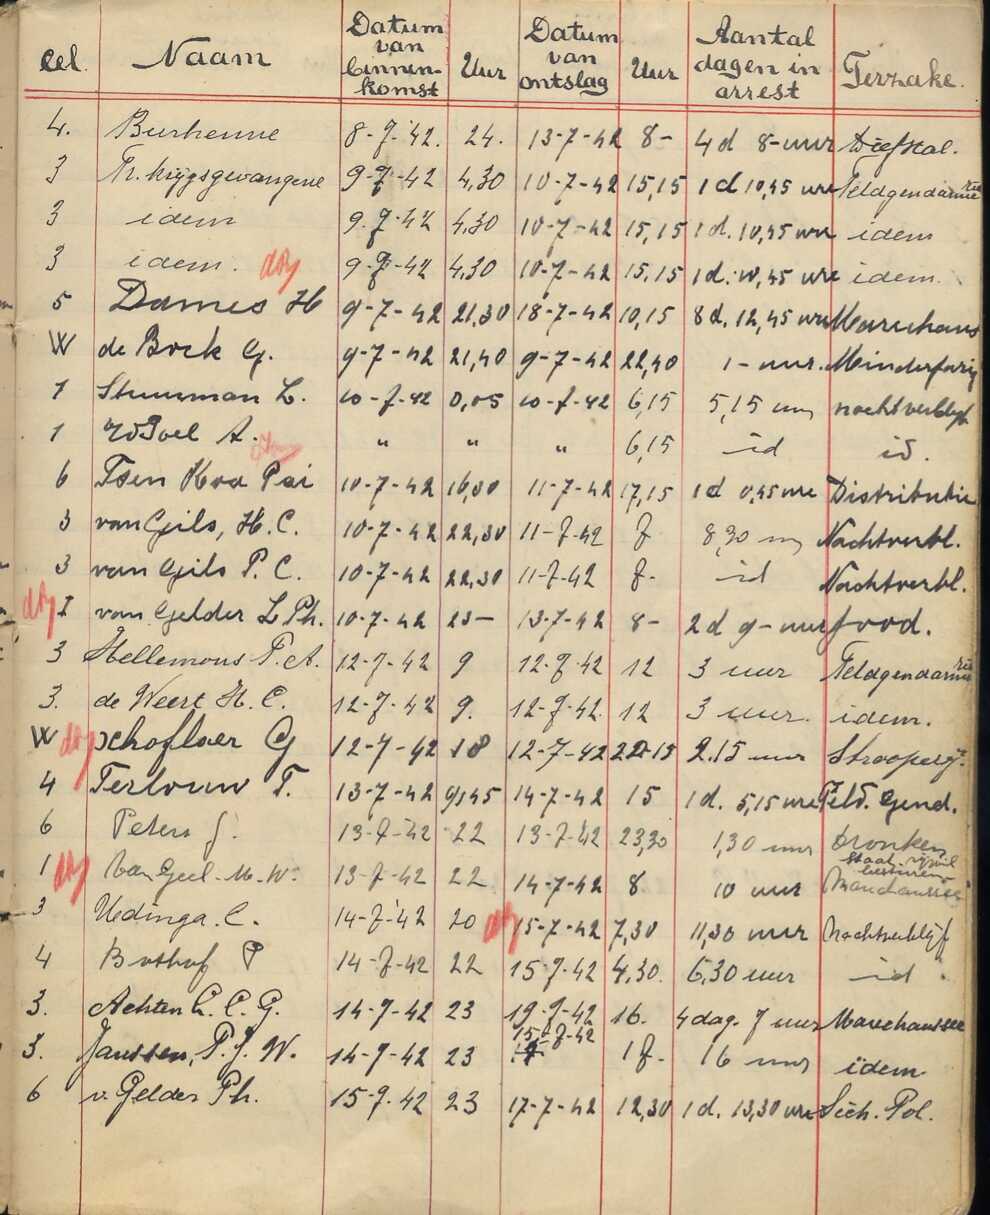 cel. Naam Datum van binnen-komst Uur Datum van ontslag Uur Aantal dagen in arrest Terzake.
4. Burhenne 8-7-'42. 24. 13-7-42 8- 4d 8-uur Diefstal.
3 Fr. krijgsgevangene 9-7-42 4,30 10-7-42 15,15 1d 10,45 ure Feldgendarmerie
3 idem 9-7-42 4,30 10-7-42 15,15 1d. 10,45 ure idem
3 idem. 9-7-42 4,30 10-7-42 15,15 1d. 10,45 ure idem.
5 Dames H 9-7-42 21,30 18-7-42 10,15 8d. 12,45 ure Marechaus
W de Bock G. 9-7-42 21,40 9-7-42 22,40 1- uur. Minderjarig
1 Stuurman L. 10-7-42 0,05 10-7-42 6,15 5,15 uur nachtverblijf
1 A. " " " 6,15 id id.
6 Tsen Hoa Pai 10-7-42 16,30 11-7-42 17,15 1d 0,45 ure Distributie
3 van Gils, H.C. 10-7-42 22,30 11-7-42 7 8,30 uur Nachtverbl.
3 van Gils P.C. 10-7-42 22,30 11-7-42 7. id Nachtverbl.
I van Gelder L Ph. 10-7-42 23- 13-7-42 8- 2d 9- uur Jood.
3 Hellemons P.A. 12-7-42 9 12-7-42 12 3 uur Feldgendarmerie
3. de Weert H.C. 12-7-42 9. 12-7-42. 12 3 uur. idem.
W Schoflaer G 12-7-42 18 12-7-42 22-15 2.15 uur Strooperij.
4 Terlouw T. 13-7-42 9,45 14-7-42 15 1d. 5,15 ure Feld. Gend.
6 Peters J. 13-7-'42 22 13-7-'42 23,30 1,30 uur Dronken
staat rijwiel besturen
1 Van Geel. M.W. 13-7-42 22 14-7-42 8 10 uur Marechaussee
3 Udinga. C. 14-7-'42 20 15-7-42 7,30 11,30 uur Nachtverblijf
4 Bothof P 14-7-42 22 15-7-42 4,30. 6,30 uur id.
3. Achten C.C.G. 14-7-42 23 19-7-42 16. 4 dag. 7 uur Marechaussee
3. Janssen, P.J.W. 14-7-42 23 15-7-42 17. 16 uur idem.
6 v. Gelder Ph. 15-7-42 23 17-7-42 12,30 1d. 13,30 ure Sich. Pol.